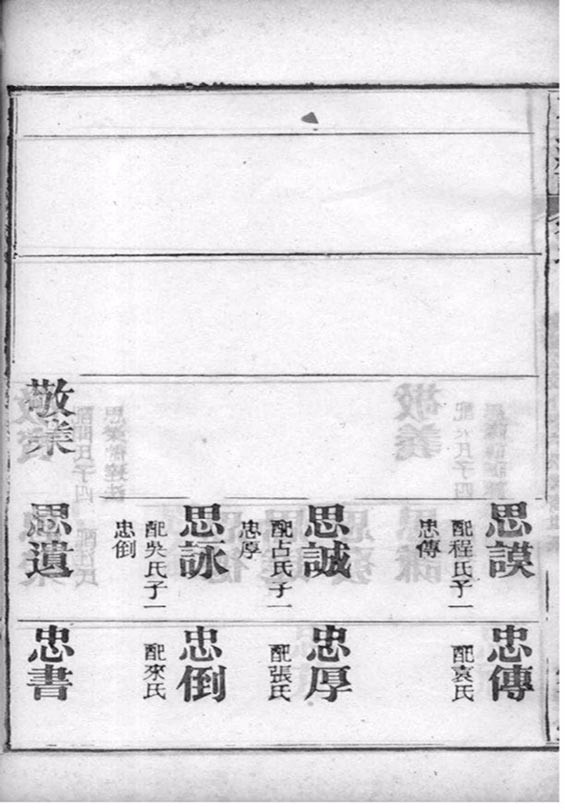 敬業
思謨
配程氏子一
忠傳
思誠
配占氏子一
忠厚
思詠
配吳氏子一
忠倒
思遺
忠傳
配袁氏
忠厚
配張氏
忠倒
配來氏
忠書